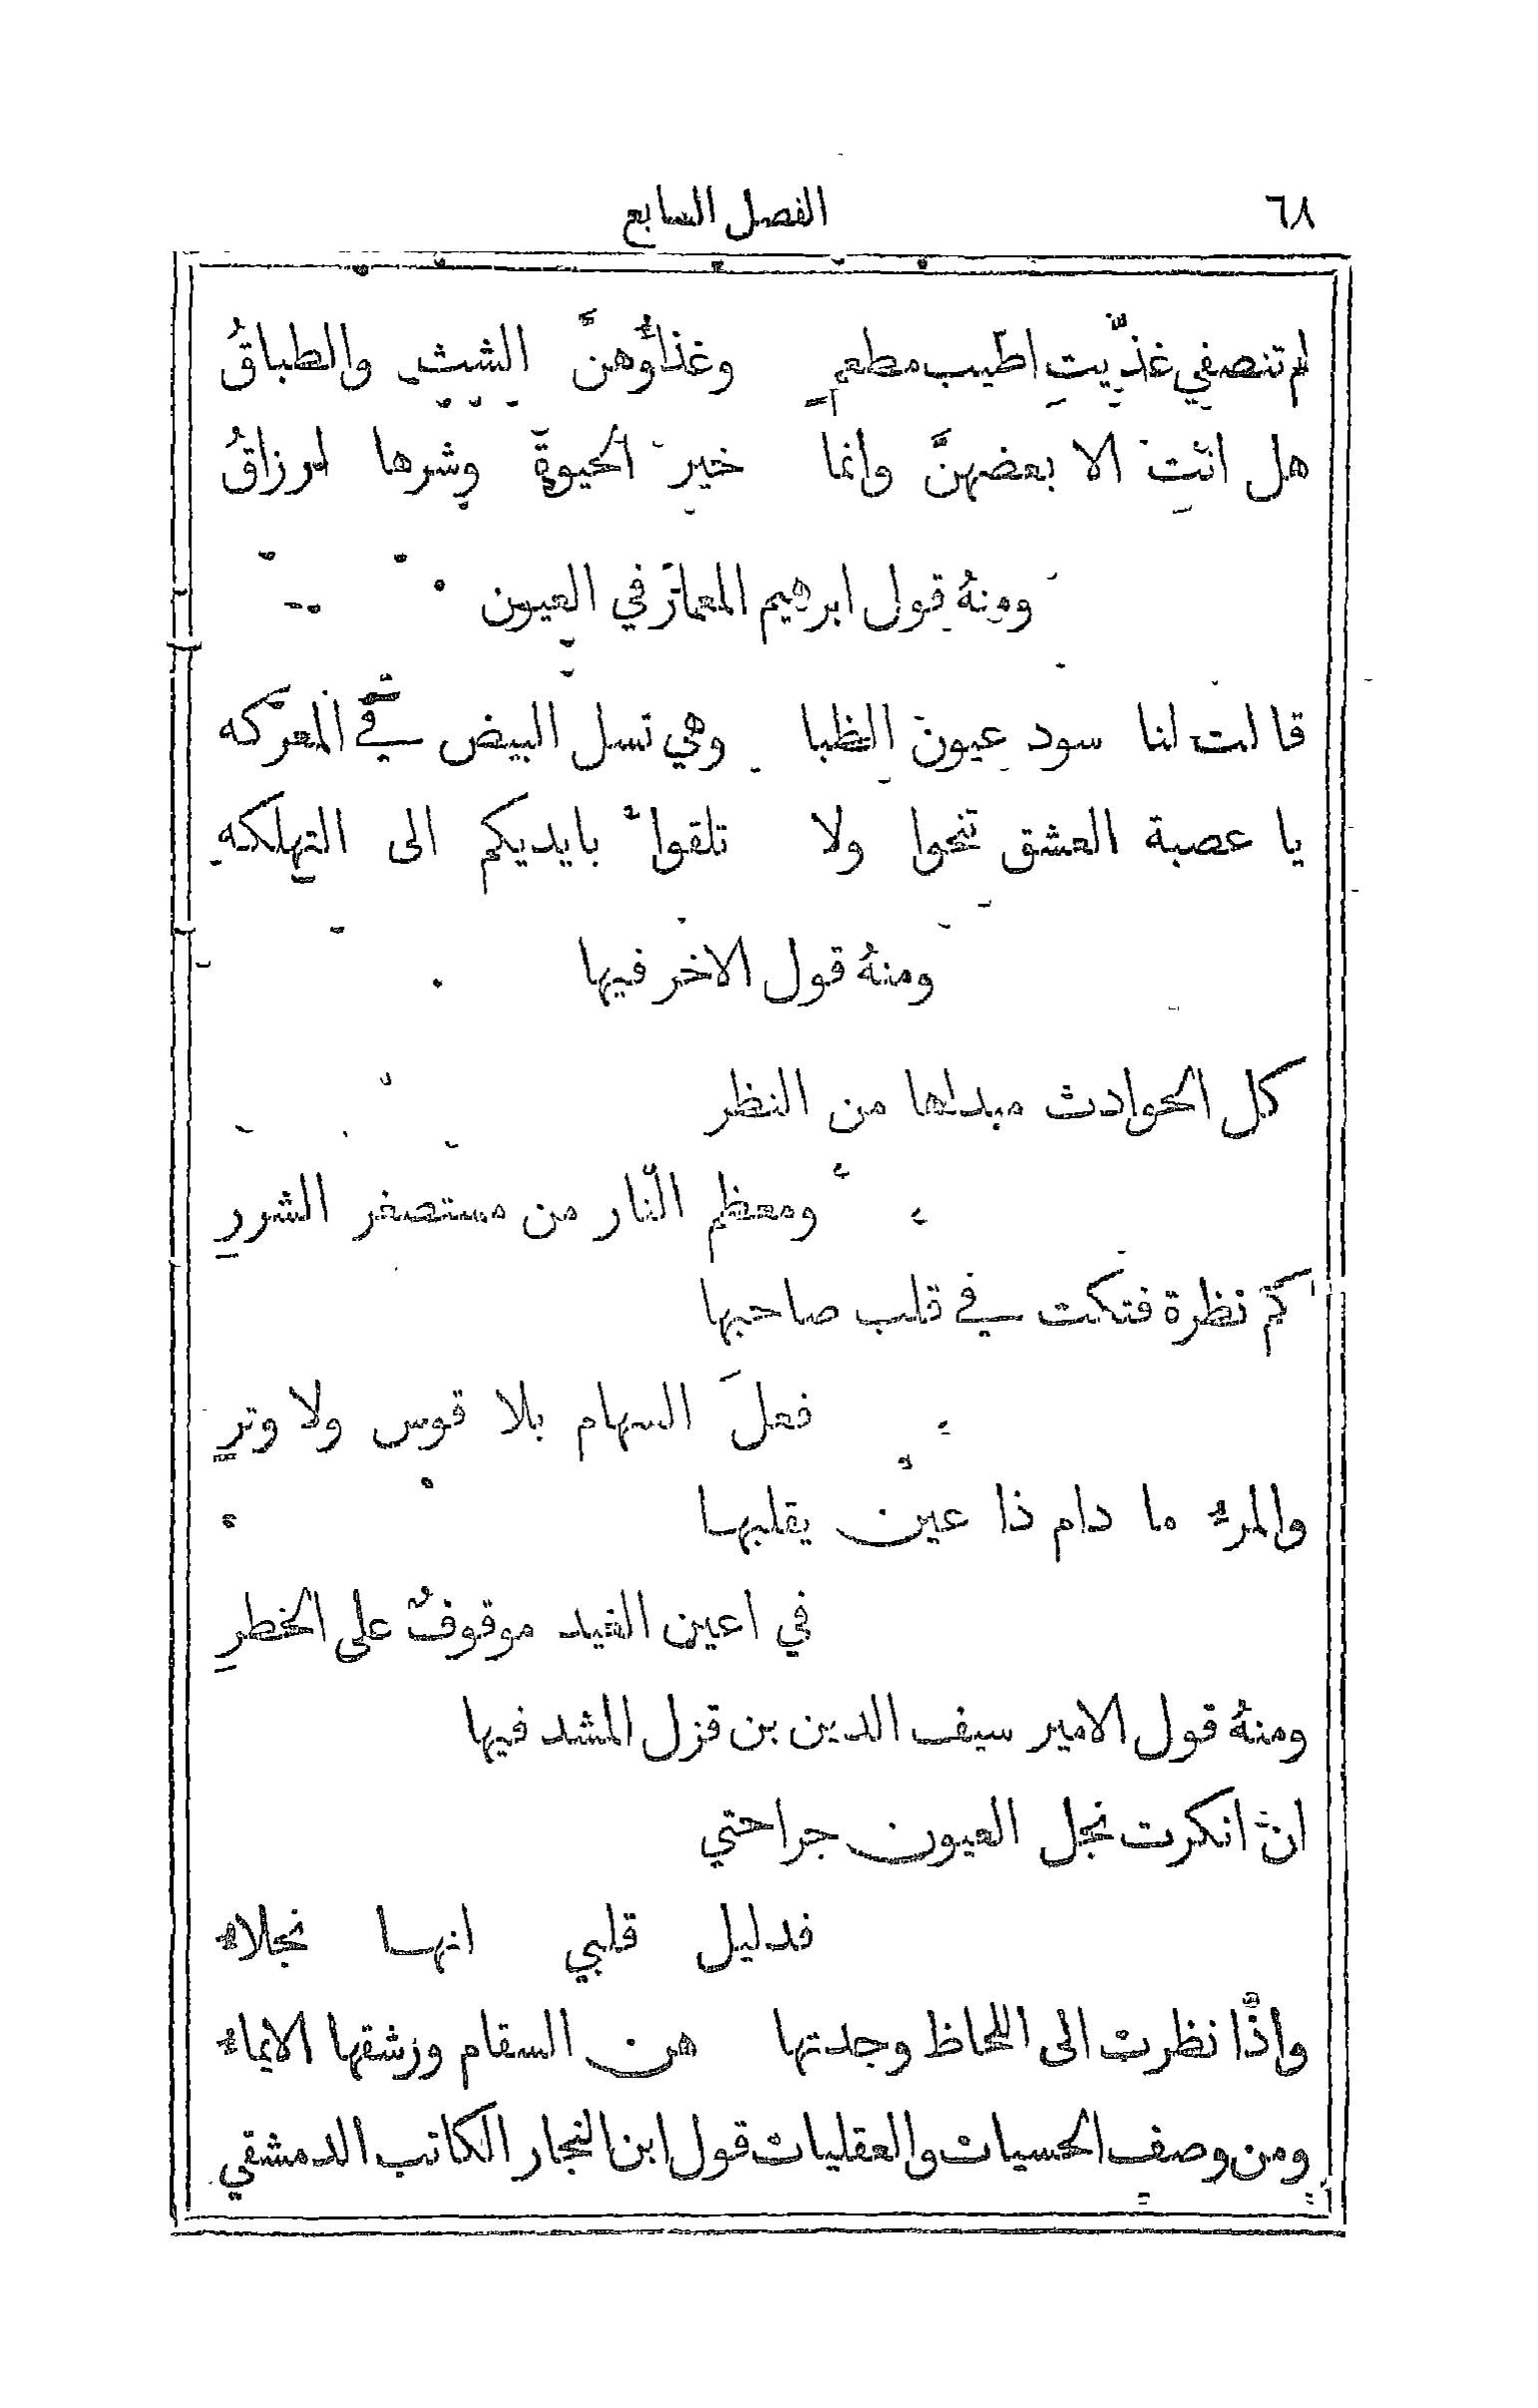 ٦٨ الفصل السابع
لم تنصفي غذّيتِ اطيب مطعمٍ وغذاؤهنَّ الشث والطباقُ
هل انتِ الا بعضهنَّ وانما خير الحيوة وشرها ارزاقُ
ومنهُ قول ابرهيم المعمار في العيون
قالت لنا سود عيون الظبا وهي تسل البيض في المعركه
يا عصبة العشق تنحوا ولا تلقوا بايديكم الى التهلكه
ومنهُ قول الاخر فيها
كل الحوادث مبداها من النظر
ومعظم النّار من مستصغر الشررِ
كم نظرة فتكت في قلب صاحبها
فعلَ السهام بلا قوس ولا وترٍ
والمرء ما دام ذا عين يقلبها
في اعين الغيد موقوفٌ على الخطرِ
ومنهُ قول الامير سيف الدين بن قزل المشد فيها
ان انكرت نجل العيون جراحتي
فدليل قلبي انها نجلاء
واذا نظرت الى اللحاظ وجدتها هن السقام ورشقها الايماء
ومن وصف الحسيات والعقليات قول ابن النجار الكاتب الدمشقي